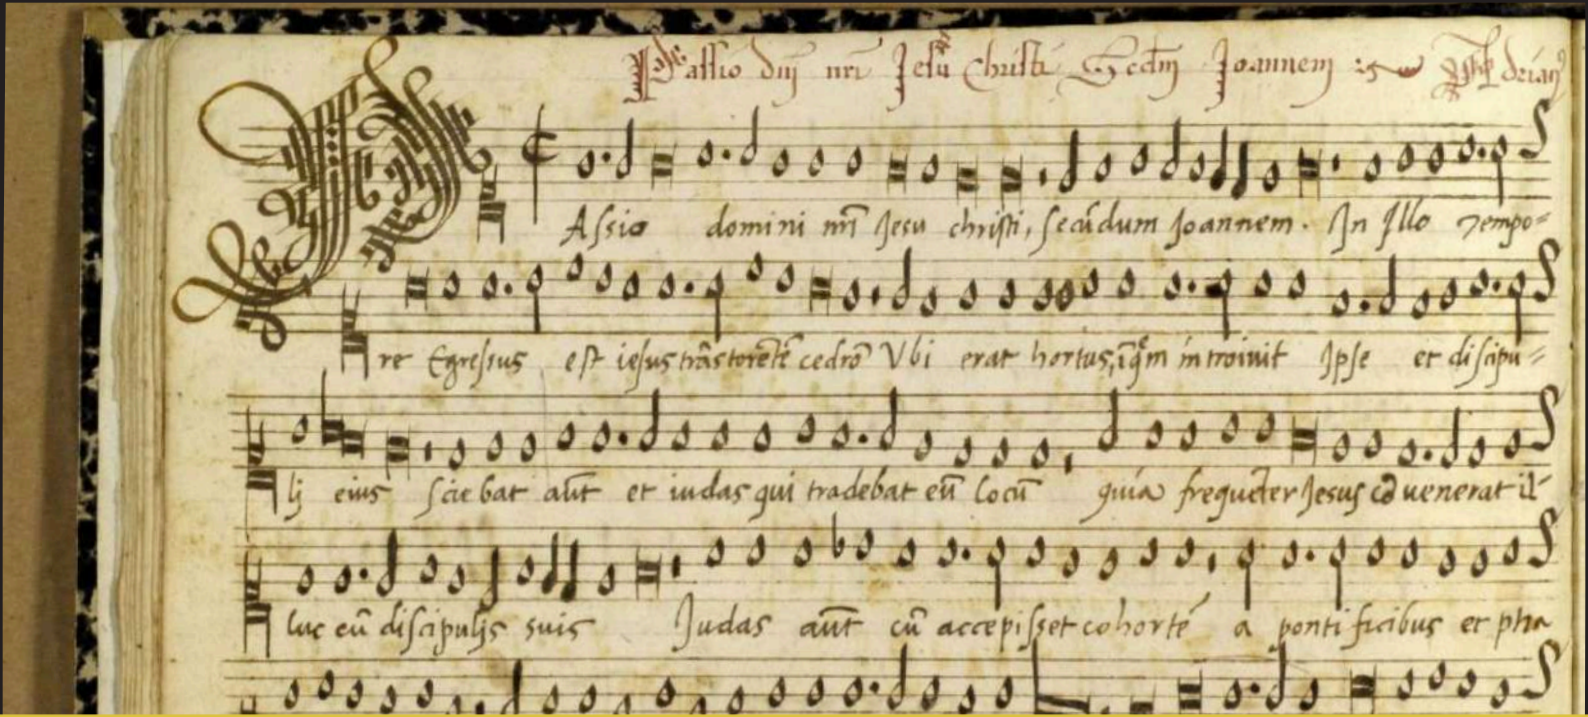 Passio dnj nrj Jesu Christi Secdm Joannem Adrian9
PAssio domini nrj Jesu christi, secūdum Joannem. In Illo Tempo=
re Egressus est iesus trāstorētē cedrō Vbi erat hortus, īqm introiuit Ipse et discipu=
lj eius sciebat aūt et iudas qui tradebat eū locū quia frequēter Jesus cō uenerat il-
luc cū discipuljs suis Judas aūt cū accepisset cohortē a pontificibus et pha